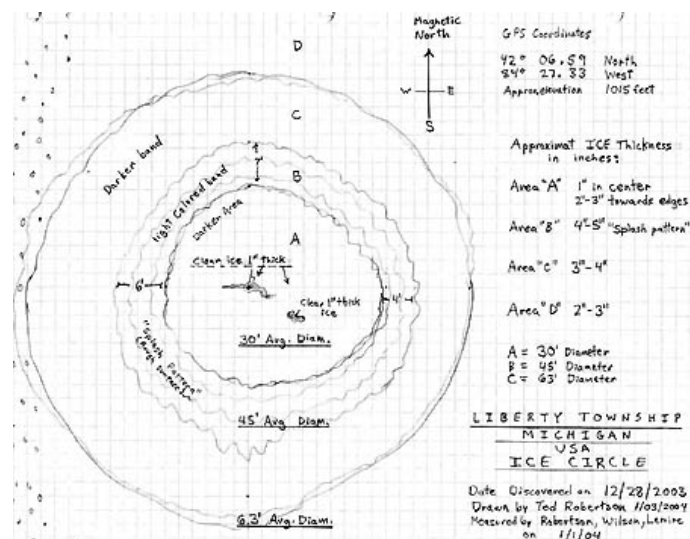 D
C
Darker band
7'
B
Light Colored band
Darker Area
A
Clear ice 1" thick
Clear 1" thick
ice
6'
4'
30' Avg. Diam.
"Splash Pattern"
(Rough surface)
45' Avg. Diam.
63' Avg. Diam.
Magnetic
North
W E
S
GPS Coordinates
42° 06.59 North
84° 27.33 West
Approx elevation 1015 feet
Approximat ICE Thickness
in inches:
Area "A" 1" in center
2"-3" towards edges
Area "B" 4"-5" "Splash pattern"
Area "C" 3"-4"
Area "D" 2"-3"
A = 30' Diameter
B = 45' Diameter
C = 63' Diameter
LIBERTY TOWNSHIP
MICHIGAN
USA
ICE CIRCLE
Date Discovered on 12/28/2003
Drawn by Ted Robertson 1/03/2004
Measured by Robertson, Wilson, Lemire
on 1/1/04